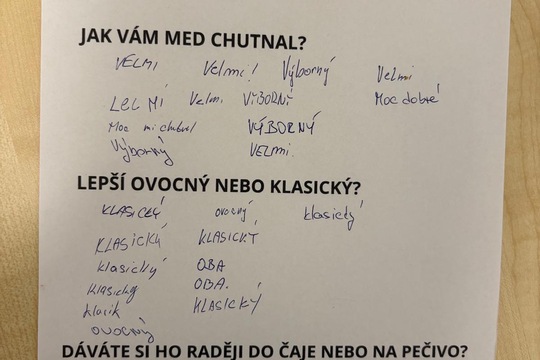 JAK VÁM MED CHUTNAL?
VELMI Velmi! Výborný Velmi
Velmi VÝBORNÝ Moc dobré
Moc mi chutnal VÝBORNÝ
Výborný VELMI.
LEPŠÍ OVOCNÝ NEBO KLASICKÝ?
KLASICKÝ ovocný klasický
KLASICKÝ KLASICKÝ
klasický OBA
Klasický OBA.
klasik KLASICKÝ
OVOCNÝ
DÁVÁTE SI HO RADĚJI DO ČAJE NEBO NA PEČIVO?